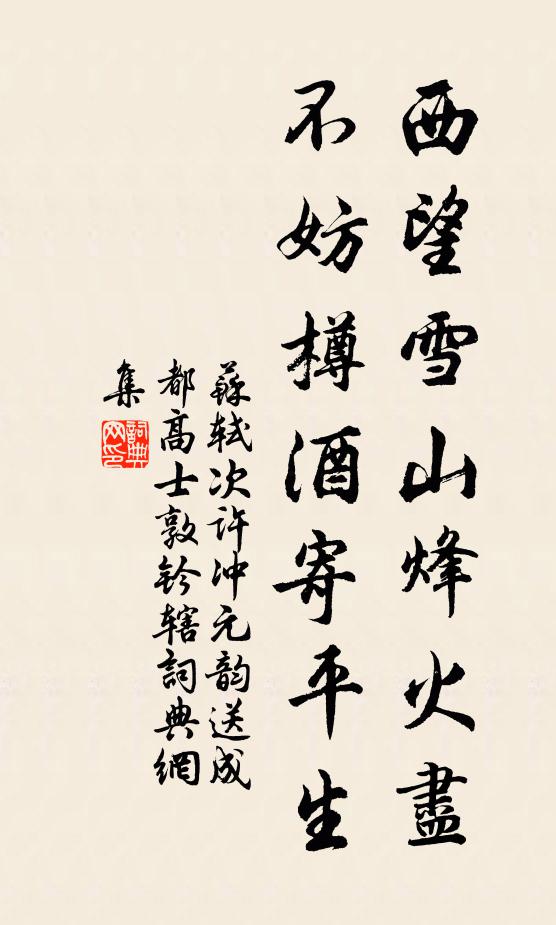 西望雪山烽火盡
不妨樽酒寄平生
蘇軾次許沖元韵送成
都高士敦鈐轄詞典網
集
詞典網印